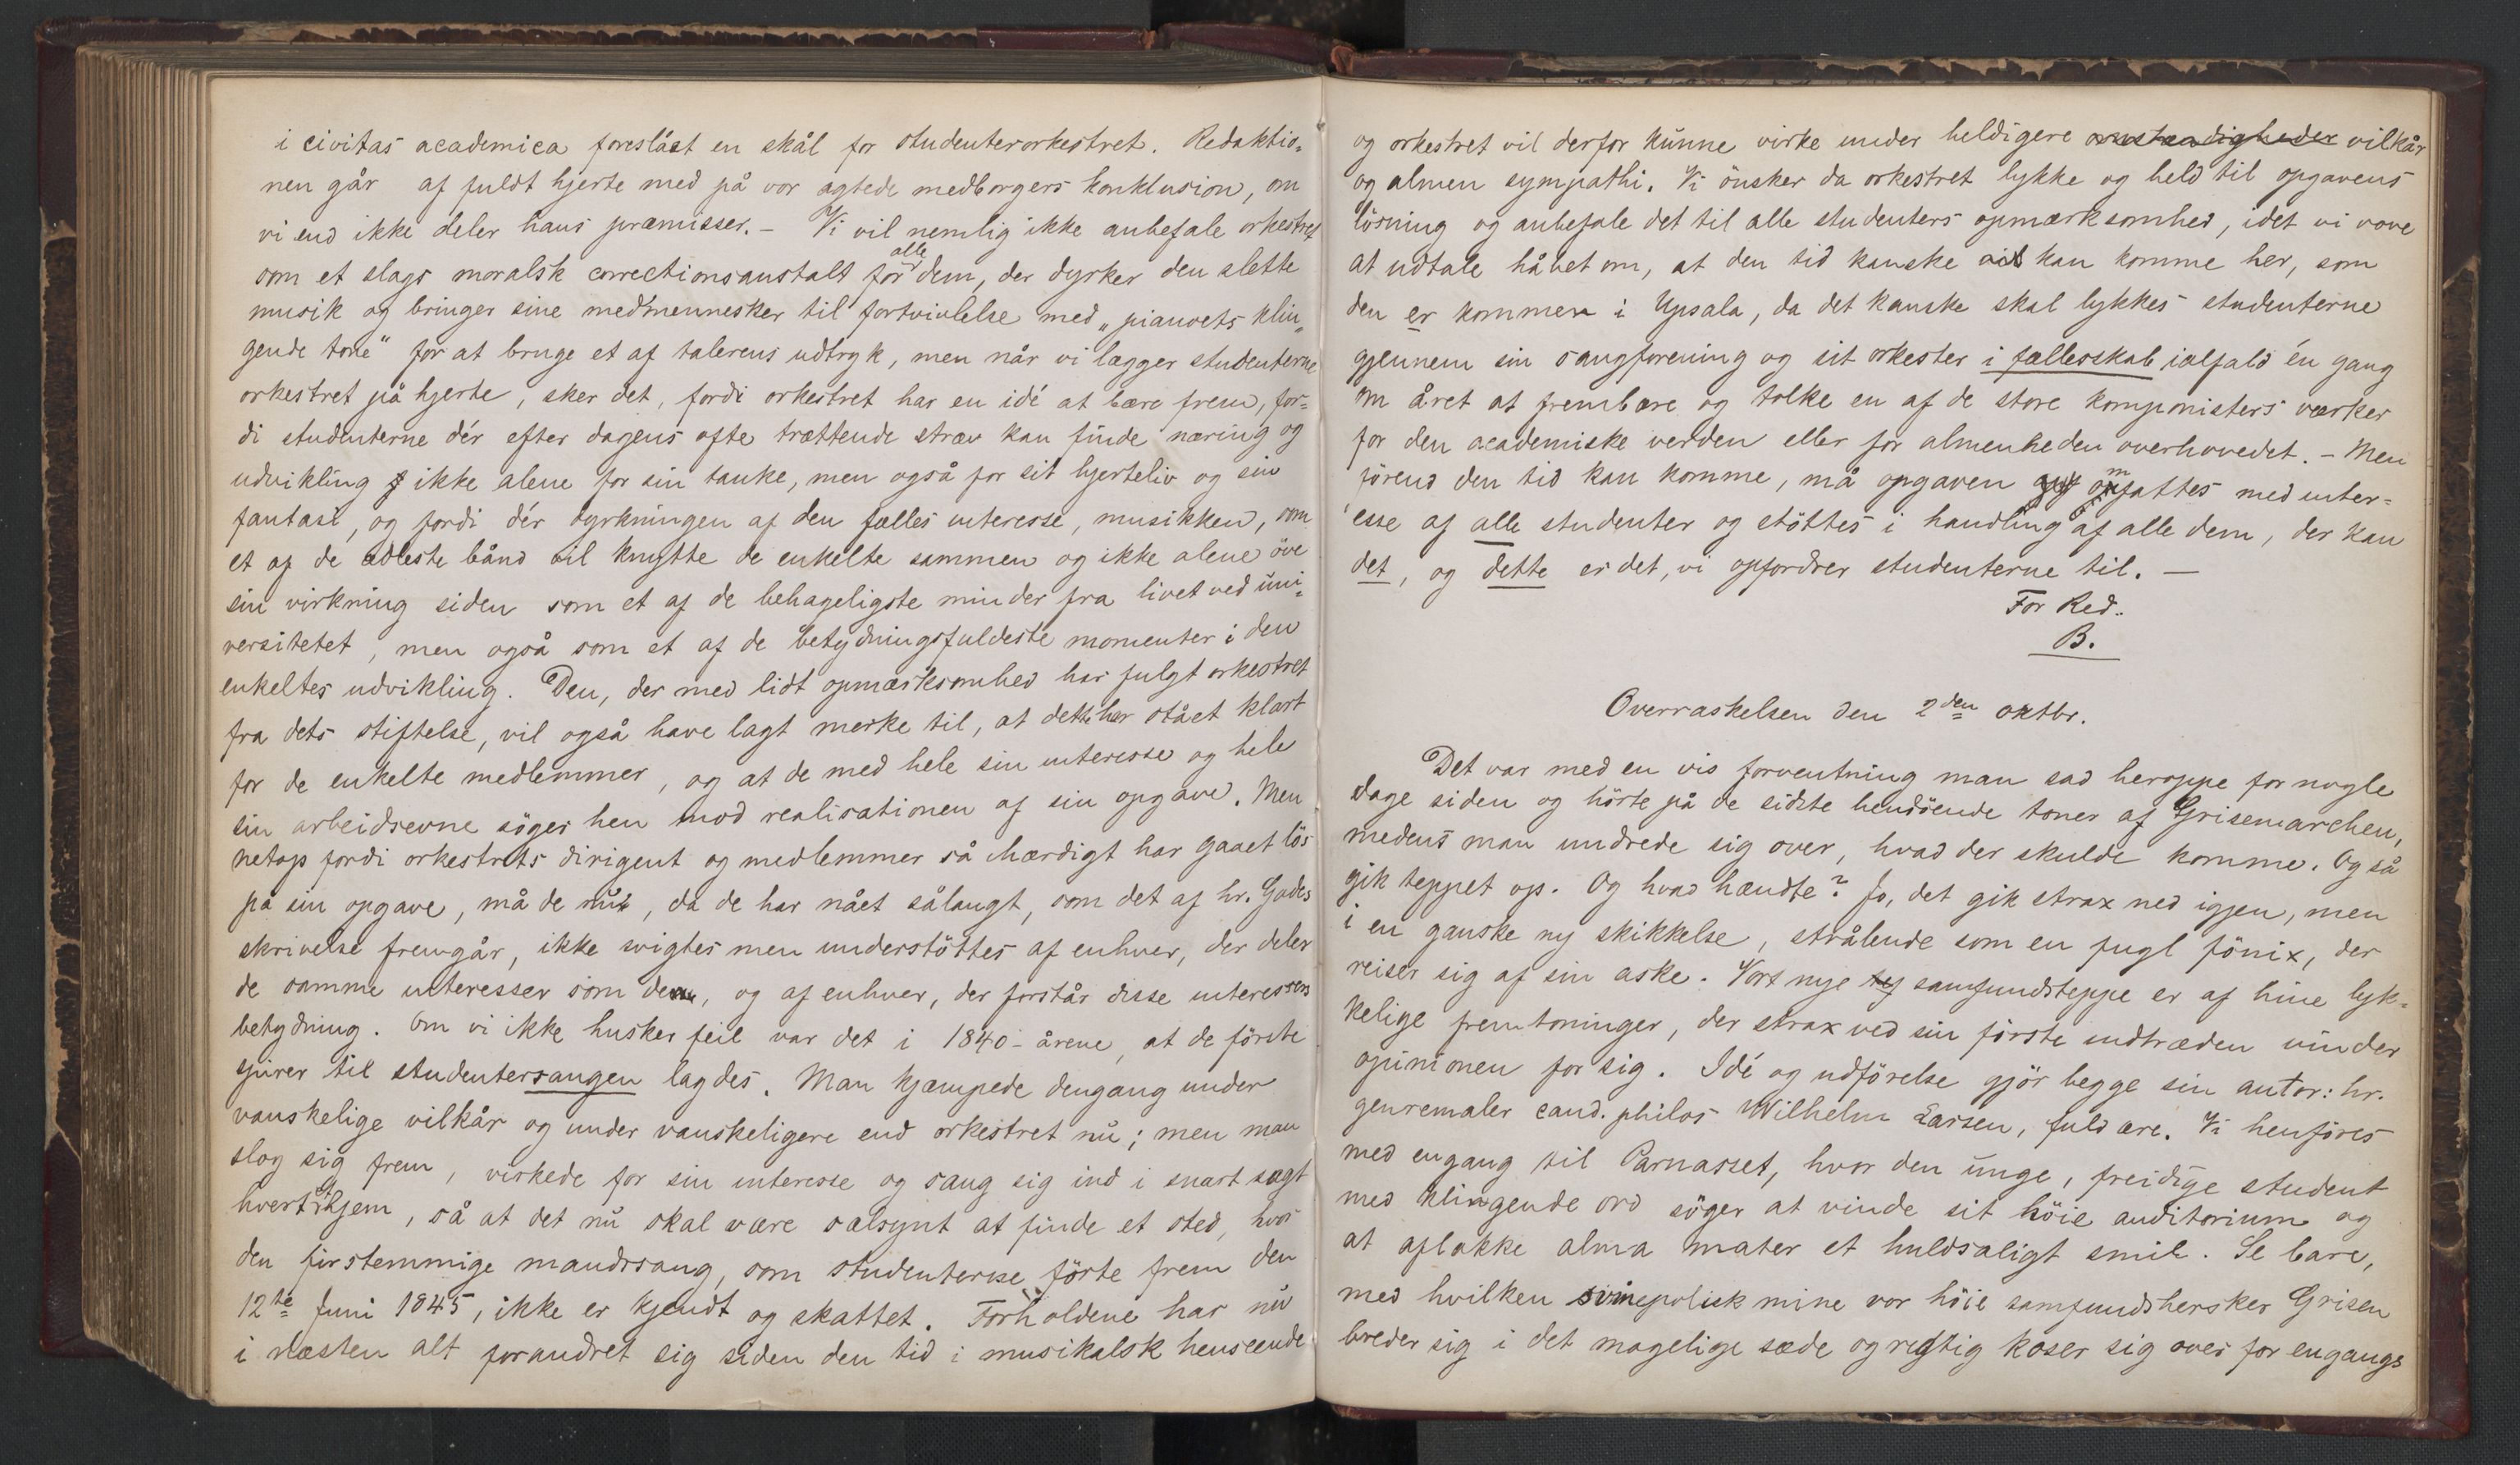 i civitas academica foreslåt en skål for studenterorkestret. Redaktio-
nen går af fuldt hjerte med på vor agtede medborgers konklusion, om
vi end ikke deler hans præmisser. – Vi vil nemlig ikke anbefale orkestret
som et slags moralsk correctionsanstalt for alle dem, der dyrker den slette
musik og bringer sine medmennesker til fortvivlelse med „pianoets klin-
gende tone" for at bruge et af talerens udtryk, men når vi lægger studenterne
orkestret på hjerte, sker det, fordi orkestret har en idé at bære frem, for-
di studenterne dér efter dagens ofte trættende stræv kan finde næring og
udvikling ikke alene for sin tanke, men også for sit hjerteliv og sin
fantasi, og fordi dér dyrkningen af den fælles interesse, musikken, som
et af de ædleste bånd vil knytte de enkelte sammen og ikke alene öve
sin virkning siden som et af de behageligste minder fra livet ved uni-
versitetet, men også som et af de betydningsfuldeste momenter i den
enkeltes udvikling. Den, der med lidt opmærksomhed har fulgt orkestret
fra dets stiftelse, vil også have lagt merke til, at dette har stået klart
for de enkelte medlemmer, og at de med hele sin interesse og hele
sin arbeidsevne söger hen mod realisationen af sin opgave. Men
netop fordi orkestrets dirigent og medlemmer så ihærdigt har gaaet lös
på sin opgave, må de nu, da de har nået sålangt, som det af hr. Gades
skrivelse fremgår, ikke svigtes men understöttes af enhver, der deler
de samme interesser som de, og af enhver, der forstår disse interessers
betydning. Om vi ikke husker feil var det i 1840-årene, at de förste
spirer til studentersangen lagdes. Man kjæmpede dengang under
vanskelige vilkår og under vanskeligere end orkestret nu; men man
slog sig frem, virkede for sin interesse og sang sig ind i snart sagt
hvert et hjem, så at det nu skal være sælsynt at finde et sted, hvor
den firstemmige mandssang, som studenterne förte frem den
12te Juni 1845, ikke er kjendt og skattet. Forholdene har nu
i næsten alt forandret sig siden den tid i musikalsk henseende
og orkestret vil derfor kunne virke under heldigere omstændigheder vilkår
og almen sympathi. Vi önsker da orkestret lykke og held til opgavens
lösning og anbefale det til alle studenters opmærksomhed, idet vi vove
at udtale håbet om, at den tid kanske vil kan komme her, som
den er kommen i Upsala, da det kanske skal lykkes studenterne
gjennem sin sangforening og sit orkester i fællesskab ialfald én gang
om året at frembære og tolke en af de store komponisters værker
for den academiske verden eller for almenheden overhovedet. – Men
förend den tid kan komme, må opgaven omfattes med inter-
esse af alle studenter og stöttes i handling af alle dem, der kan
det, og dette er det, vi opfordrer studenterne til. —
For Red.
B.
Overraskelsen den 2den oktbr.
Det var med en vis forventning man sad heroppe for nogle
dage siden og hörte på de sidste hendöende toner af Grisemarchen,
medens man undrede sig over, hvad der skulde komme. Og så
gik teppet op. Og hvad hændte? Jo, det gik strax ned igjen, men
i en ganske ny skikkelse, strålende som en fugl fönix, der
reiser sig af sin aske. Vort nye samfundsteppe er af hine lyk-
kelige fremtoninger, der strax ved sin förste indtræden vinder
opinionen for sig. Idé og udförelse gjör begge sin autor: hr.
genremaler cand. philos Wilhelm Larsen, fuld ære. Vi henföres
med engang til Parnasset, hvor den unge, freidige student
med klingende ord söger at vinde sit höie auditorium og
at aflokke alma mater et huldsaligt smil. Se bare,
med hvilken svinepolisk mine vor höie samfundshersker Grisen
breder sig i det magelige sæde og regtig koser sig over for engangs